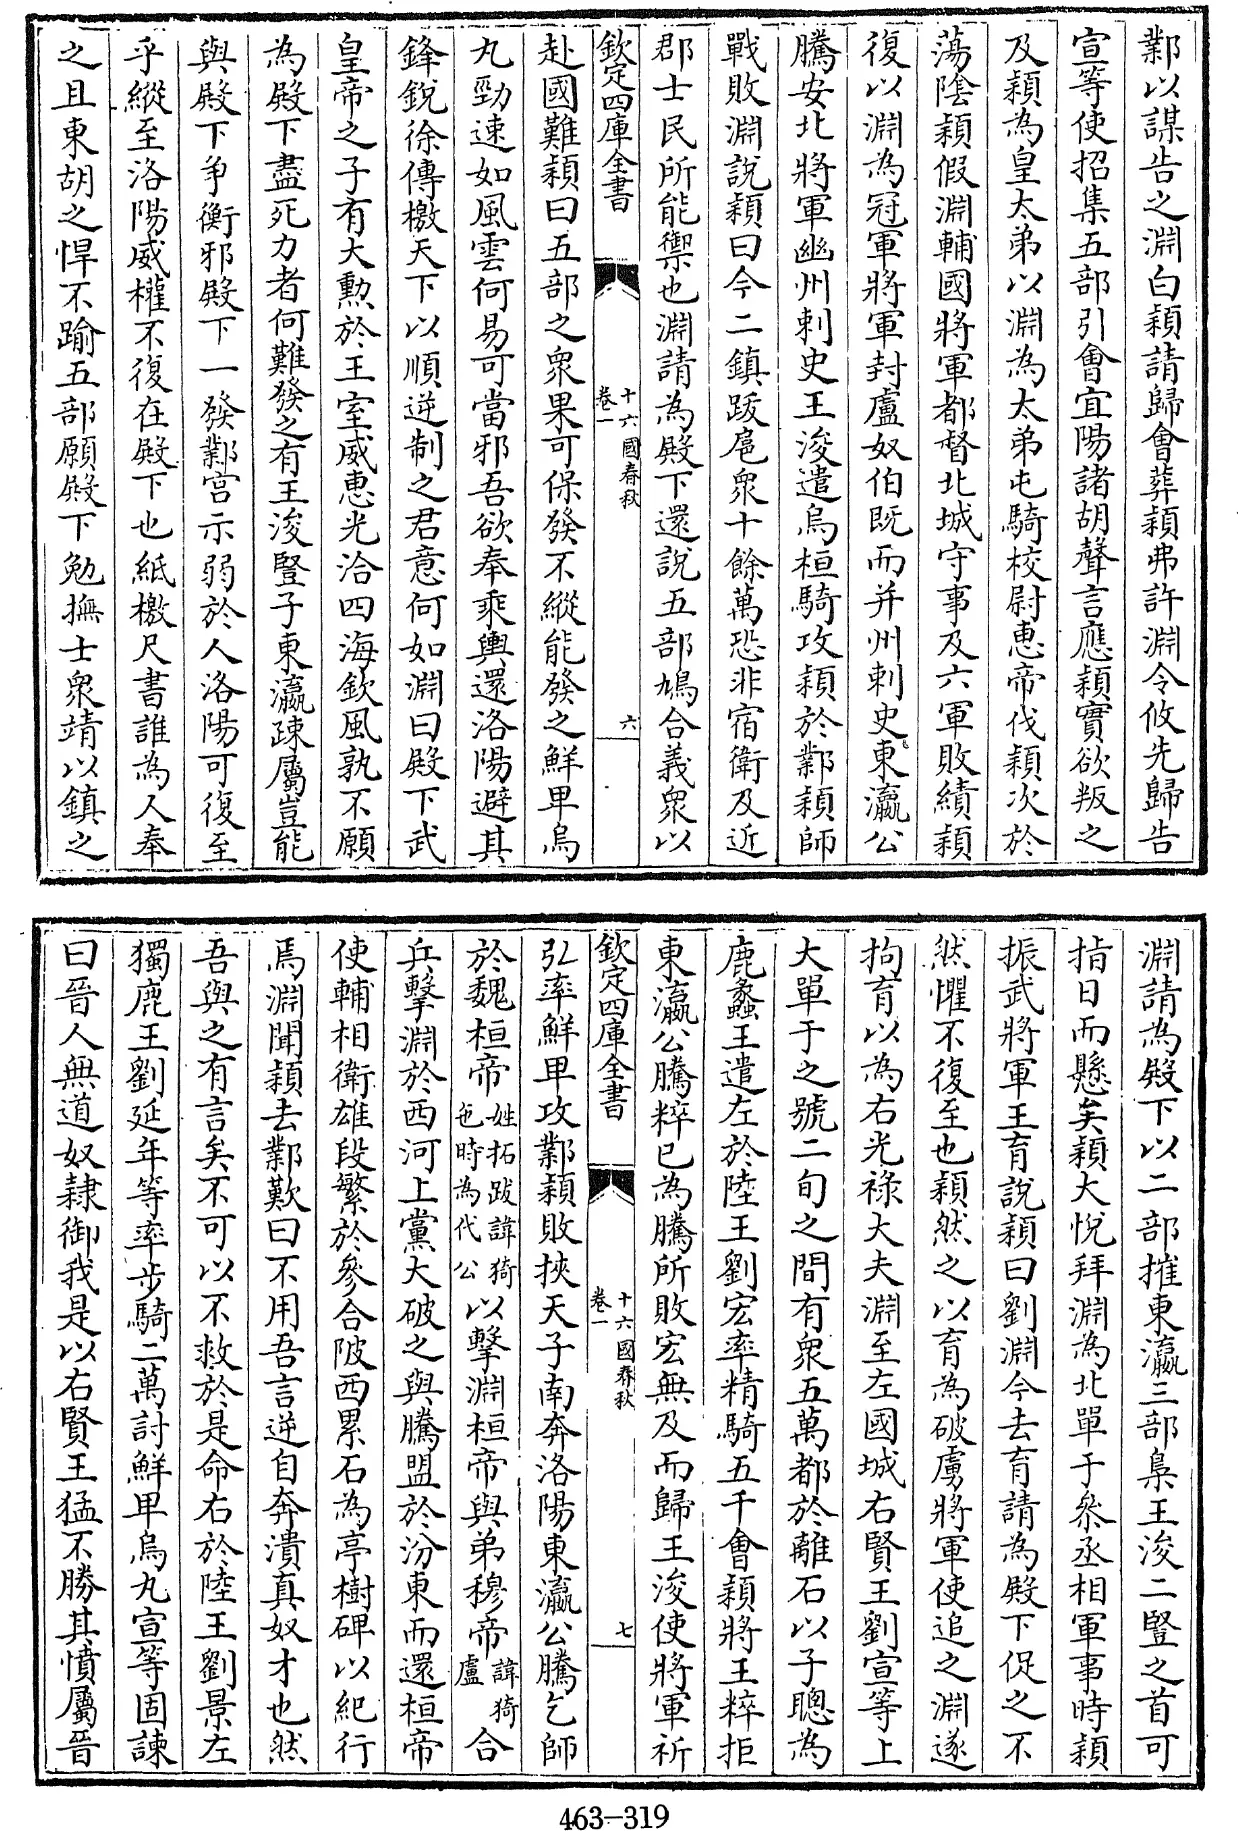 鄴以謀告之淵白穎請歸會葬穎弗許淵令攸先歸告
宣等使招集五部引會宜陽諸胡聲言應穎實欲叛之
及穎為皇太弟以淵為太弟屯騎校尉惠帝伐穎次於
蕩陰穎假淵輔國將軍都督北城守事及六軍敗績穎
復以淵為冠軍將軍封盧奴伯既而并州刺史東瀛公
騰安北將軍幽州刺史王浚遣烏桓騎攻穎於鄴穎師
戰敗淵說穎曰今二鎮跋扈衆十餘萬恐非宿衛及近
郡士民所能禦也淵請為殿下還說五部鳩合義衆以
欽定四庫全書
十六國春秋
卷一
六
赴國難穎曰五部之衆果可保發不縱能發之鮮卑烏
丸勁速如風雲何易可當邪吾欲奉乘輿還洛陽避其
鋒銳徐傳檄天下以順逆制之君意何如淵曰殿下武
皇帝之子有大勲於王室威惠光洽四海欽風孰不願
為殿下盡死力者何難發之有王浚豎子東瀛疎屬豈能
與殿下爭衡邪殿下一發鄴宮示弱於人洛陽可復至
乎縱至洛陽威權不復在殿下也紙檄尺書誰為人奉
之且東胡之悍不踰五部願殿下勉撫士衆靖以鎮之
淵請為殿下以二部摧東瀛三部梟王浚二豎之首可
指日而懸矣穎大悅拜淵為北單于參丞相軍事時穎
振武將軍王育說穎曰劉淵今去育請為殿下促之不
然懼不復至也穎然之以育為破虜將軍使追之淵遂
拘育以為右光祿大夫淵至左國城右賢王劉宣等上
大單于之號二旬之間有衆五萬都於離石以子聰為
鹿蠡王遣左於陸王劉宏率精騎五千會穎將王粹拒
東瀛公騰粹已為騰所敗宏無及而歸王浚使將軍祈
欽定四庫全書
十六國春秋
卷一
七
弘率鮮卑攻鄴穎敗挾天子南奔洛陽東瀛公騰乞師
於魏桓帝姓拓跋諱猗㐌時為代公以擊淵桓帝與弟穆帝諱猗盧合
兵擊淵於西河上黨大破之與騰盟於汾東而還桓帝
使輔相衛雄段繁於參合陂西累石為亭樹碑以紀行
焉淵聞穎去鄴歎曰不用吾言逆自奔潰真奴才也然
吾與之有言矣不可以不救於是命右於陸王劉景左
獨鹿王劉延年等率步騎二萬討鮮卑烏丸宣等固諫
曰晉人無道奴隸御我是以右賢王猛不勝其憤屬晉
463-319